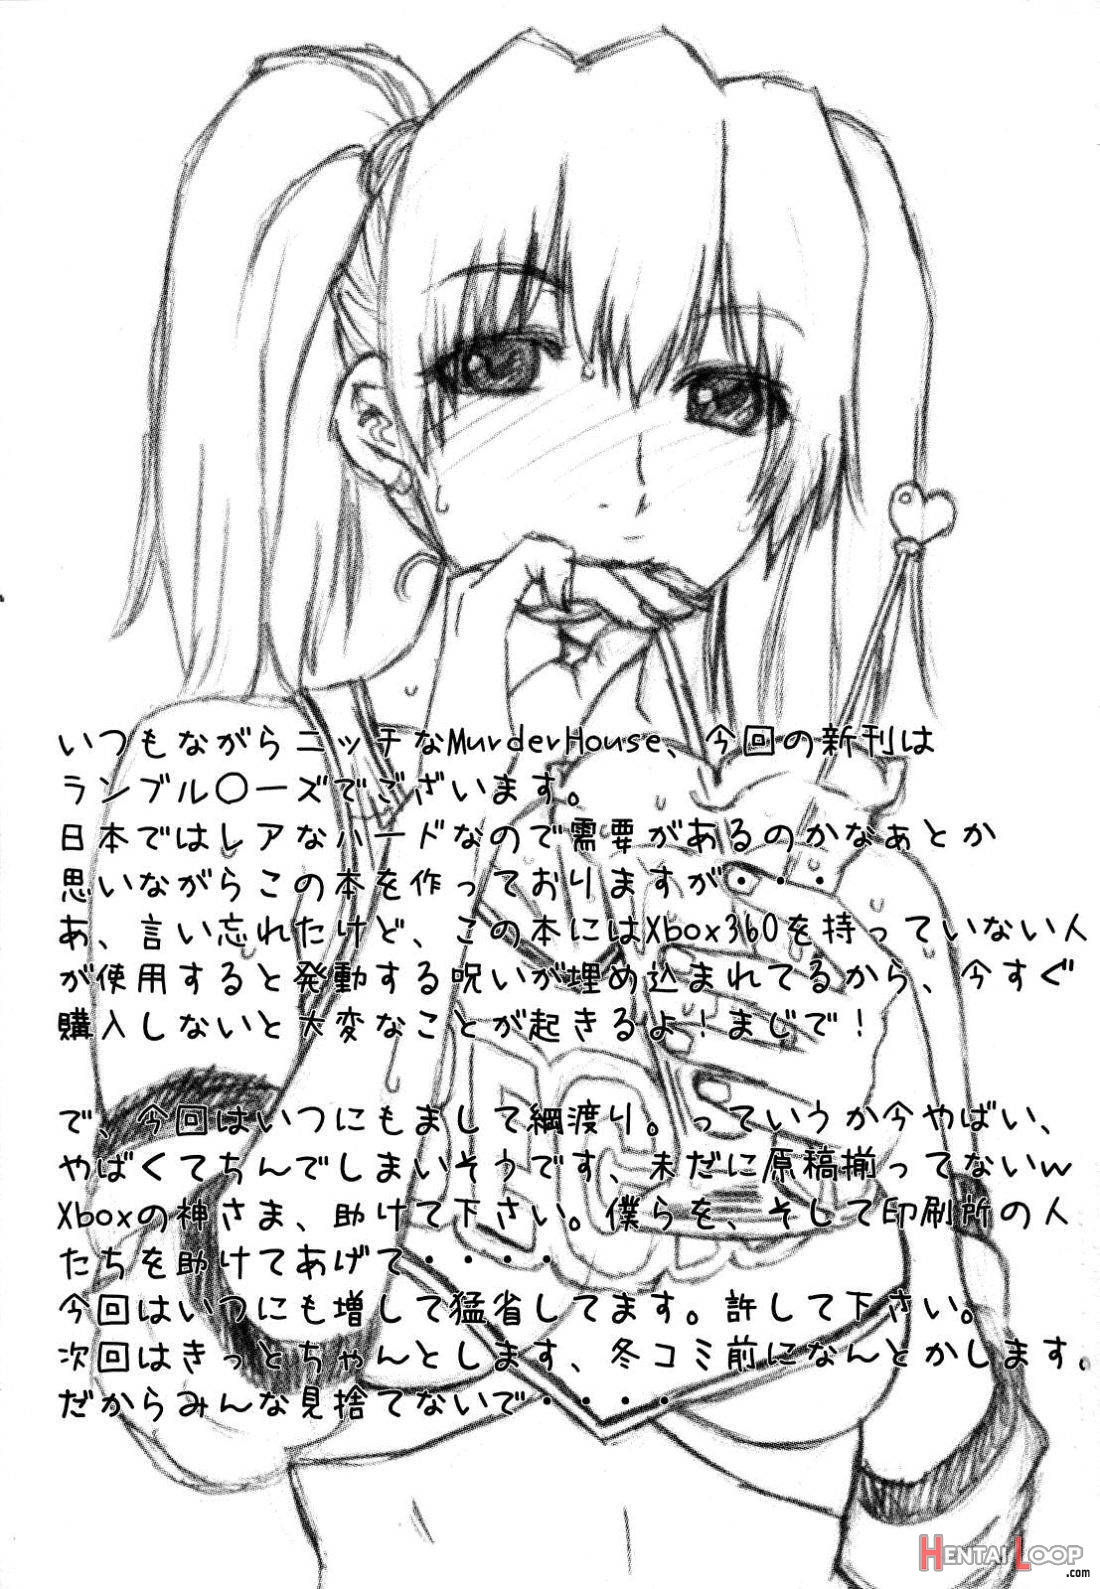 いつもながらニッチなMurderHouse、今回の新刊は
ランブル〇ーズでございます。
日本ではレアなハードなので需要があるのかなぁとか
思いながらこの本を作っておりますが・・・
あ、言い忘れたけど、この本にはXbox360を持っていない人
が使用すると発動する呪いが埋め込まれてるから、今すぐ
購入しないと大変なことが起きるよ！まじで！
で、今回はいつにもまして綱渡り。っていうか今やばい、
やばくてちんでしまいそうです、未だに原稿揃ってないw
Xboxの神さま、助けて下さい。僕らを、そして印刷所の人
たちを助けてあげて・・・・
今回はいつにも増して猛省してます。許して下さい。
次回はきっとちゃんとします、冬コミ前になんとかします。
だからみんな見捨てないで・・・・
HENTAI LOOP
.com